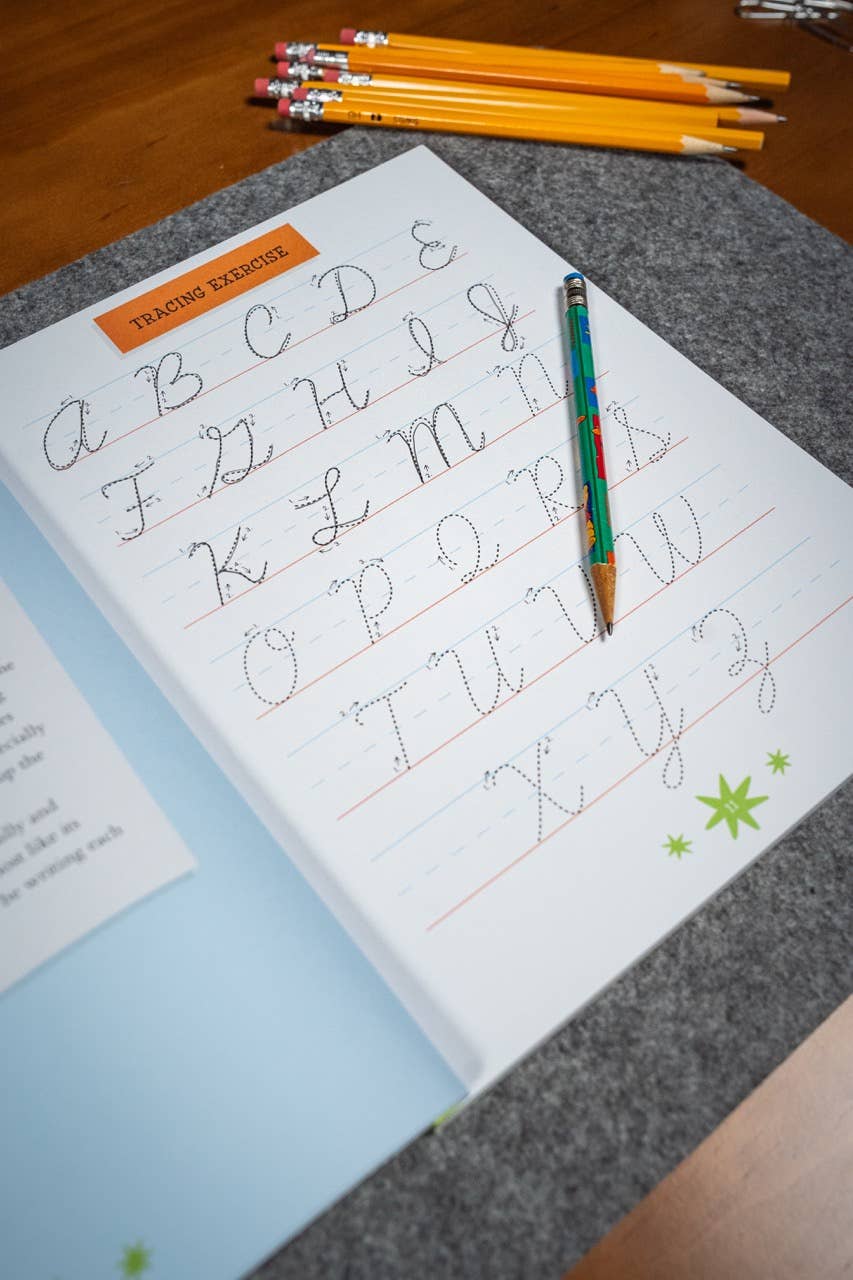 TRACING EXERCISE
A B C D E
F G H I J
K L M N
O P Q R S
T U V W
X Y Z
11
ecially
up the
ally and
like its
be writing each